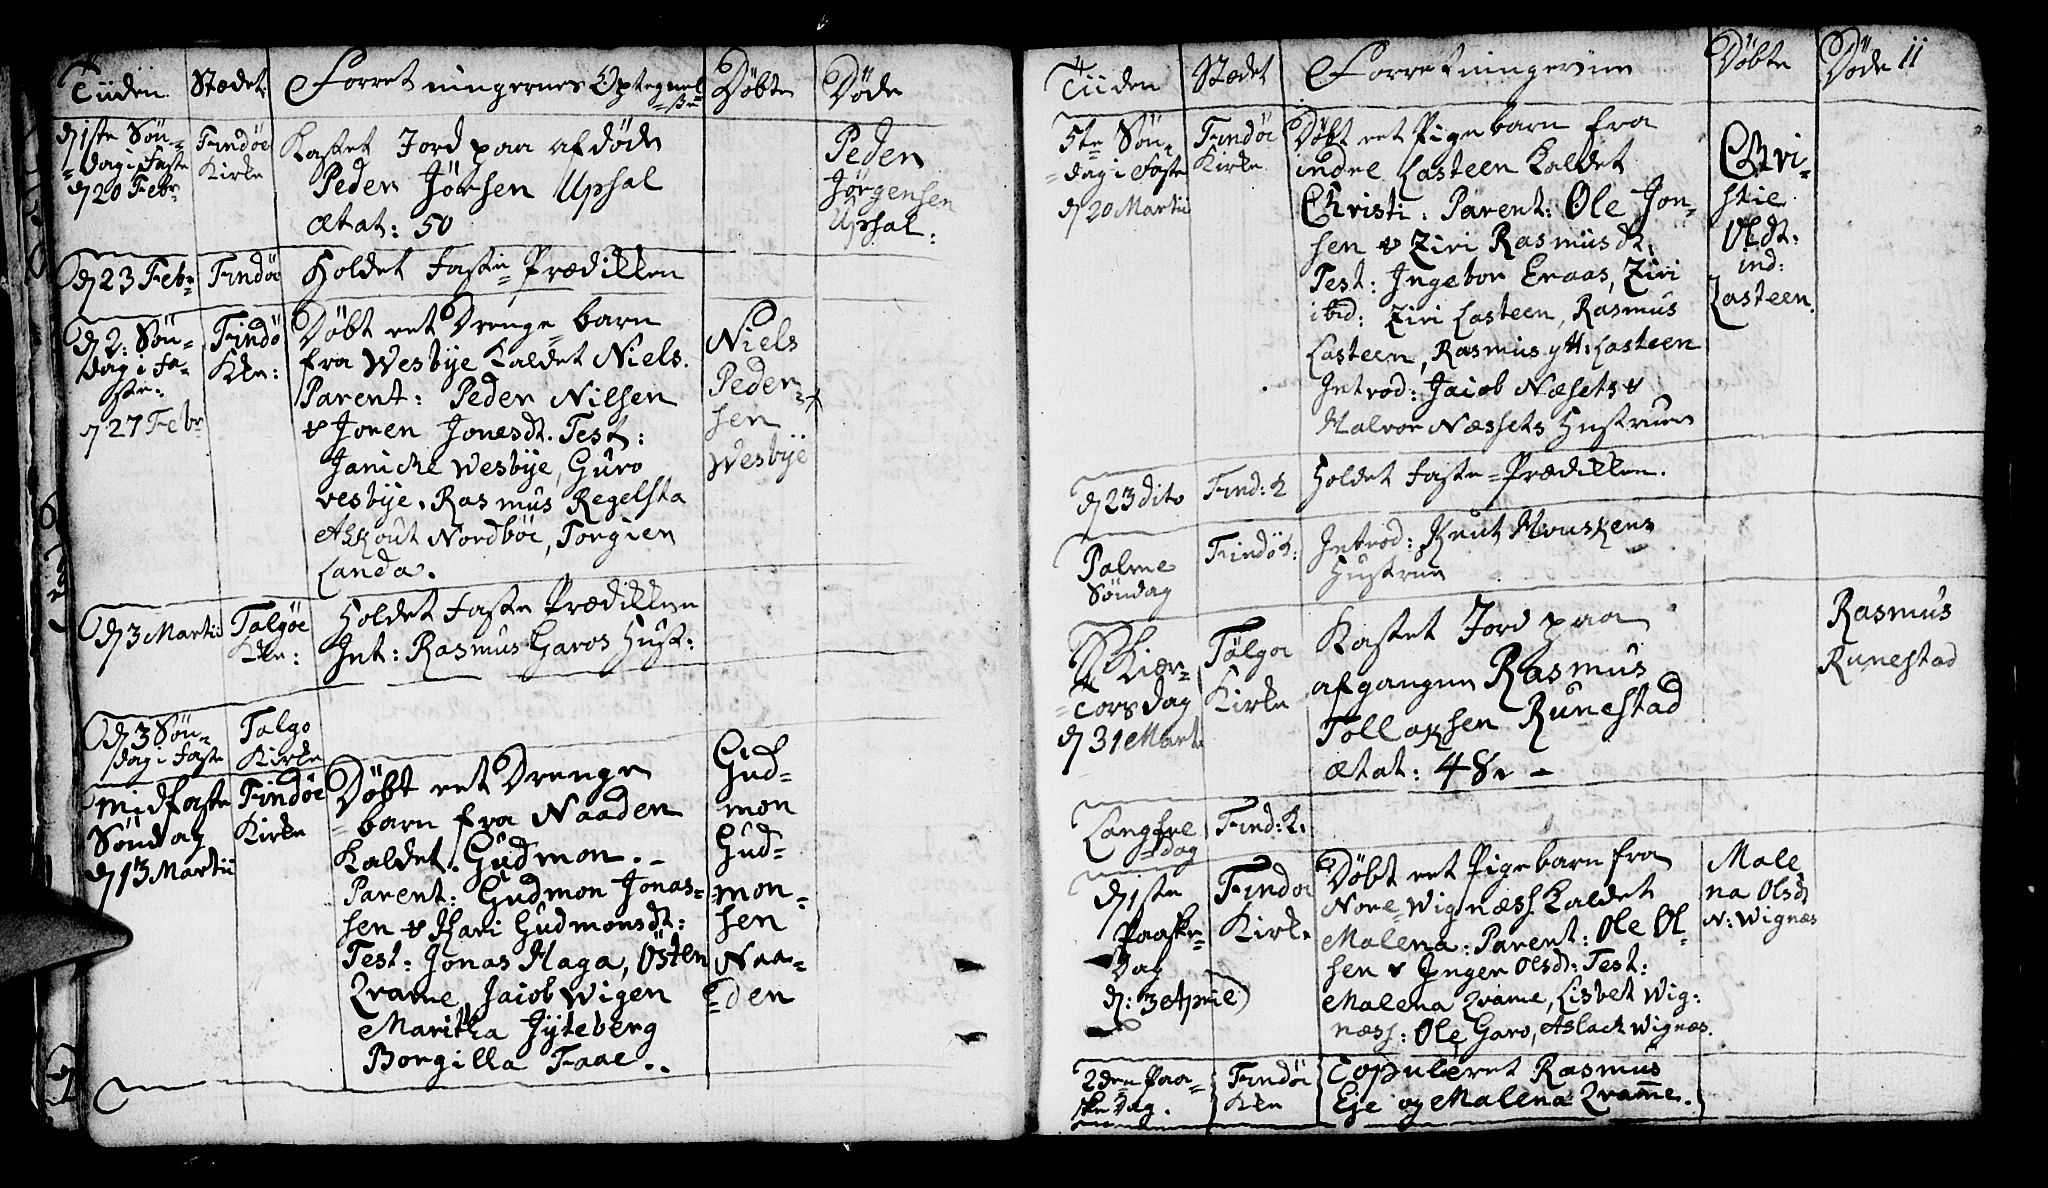 Tiiden. Stædet. Forretningernes Optegnel= Døbte Døde
=se
d 1ste Søn=
=dag i Faste
d 20 Febr
Findöe
Kirke
Kastet Jord paa afdøde
Peder Jörsen Upsal
Ætat: 50
Peder
Jørgensen
Upsal:
d 23 Febr: Findöe Holdet Faste=Prædikken
d 2: Søn=
dag i Fa=
ste:
d 27 Febr
Findö
Kke:
Döbt eet Drenge barn
fra Wesbye kaldet Niels.
Parent: Peder Nilsen
& Joren Jonesdt. Test:
Janicke Wesbye, Guro
vesbye. Rasmus Regelsta
Askout Nordböe, Torgier
Landa.
Niels
Peder=
sen
Wesbÿe
d 3 Martii Talgöe
Kke:
Holdet Faste Prædikken
Int: Rasmus Garos Hust:
d 3 Søn=
dag i Faste
Talgo
Kirke
Midfaste
Søndag
d 13 Martii
Findöe
Kirke
Döbt eet Drenge
=barn fra Naaden
kaldet. Gudmon. -
Parent: Gudmon Jonas=
sen & Kari Gudmonsdt:
Test: Jonas Haga, Östen
Qvame, Jacob Wigen
Maritha Jÿteberg
Borgilla Faae..
Gud=
mon
Gud=
mon=
sen
Naa=
=den
Tiiden Stædet Forretningerne Døbte Døde 11
5te Søn=
=dag i Faste
d 20 Martii
Findöe
Kirke
Döbt eet Pigebarn fra
indre Lasteen kaldet
Christi: Parent: Ole Jon=
sen & Ziri Rasmusdt.
Test: Ingebor Eraas, Ziri
ibid: Ziri Lasteen, Rasmus
Lasteen, Rasmus ytt: Lasteen
Introd: Jacob Næsets &
Halvor Næssets Hustruer
Chri=
stie
Oldt:
ind:
Lasteen.
d 23 dito Find: K Holdet Faste=Prædikken.
Palme
Søndag
Findö k: Introd: Knut Houskens
Hustrue
Skiær=
=torsdag
d 31 Mart.
Tölgoe
Kirke
Kastet Jord paa
afgangen Rasmus
Tollaksen Runestad
Ætat: 48. -
Rasmus
Runestad
Langfre
=dag
Find: K.
d 1ste
Paaske=
Dag
d: 3 April
Findöe
Kirke
Döbt eet Pigebarn fra
Nore=Wignæss kaldet
Malena: Parent: Ole Ol=
sen & Inger Olsdt: Test:
Malena Qvame, Lisbet Wig=
næss: Ole Garo, Aslack Wignæs.
Male
na Olsdt
N: Wignæs
2den Paa=
ske Dag.
Findöe
Kke
Copuleret Rasmus
Eje og Malena Qvam̄e.